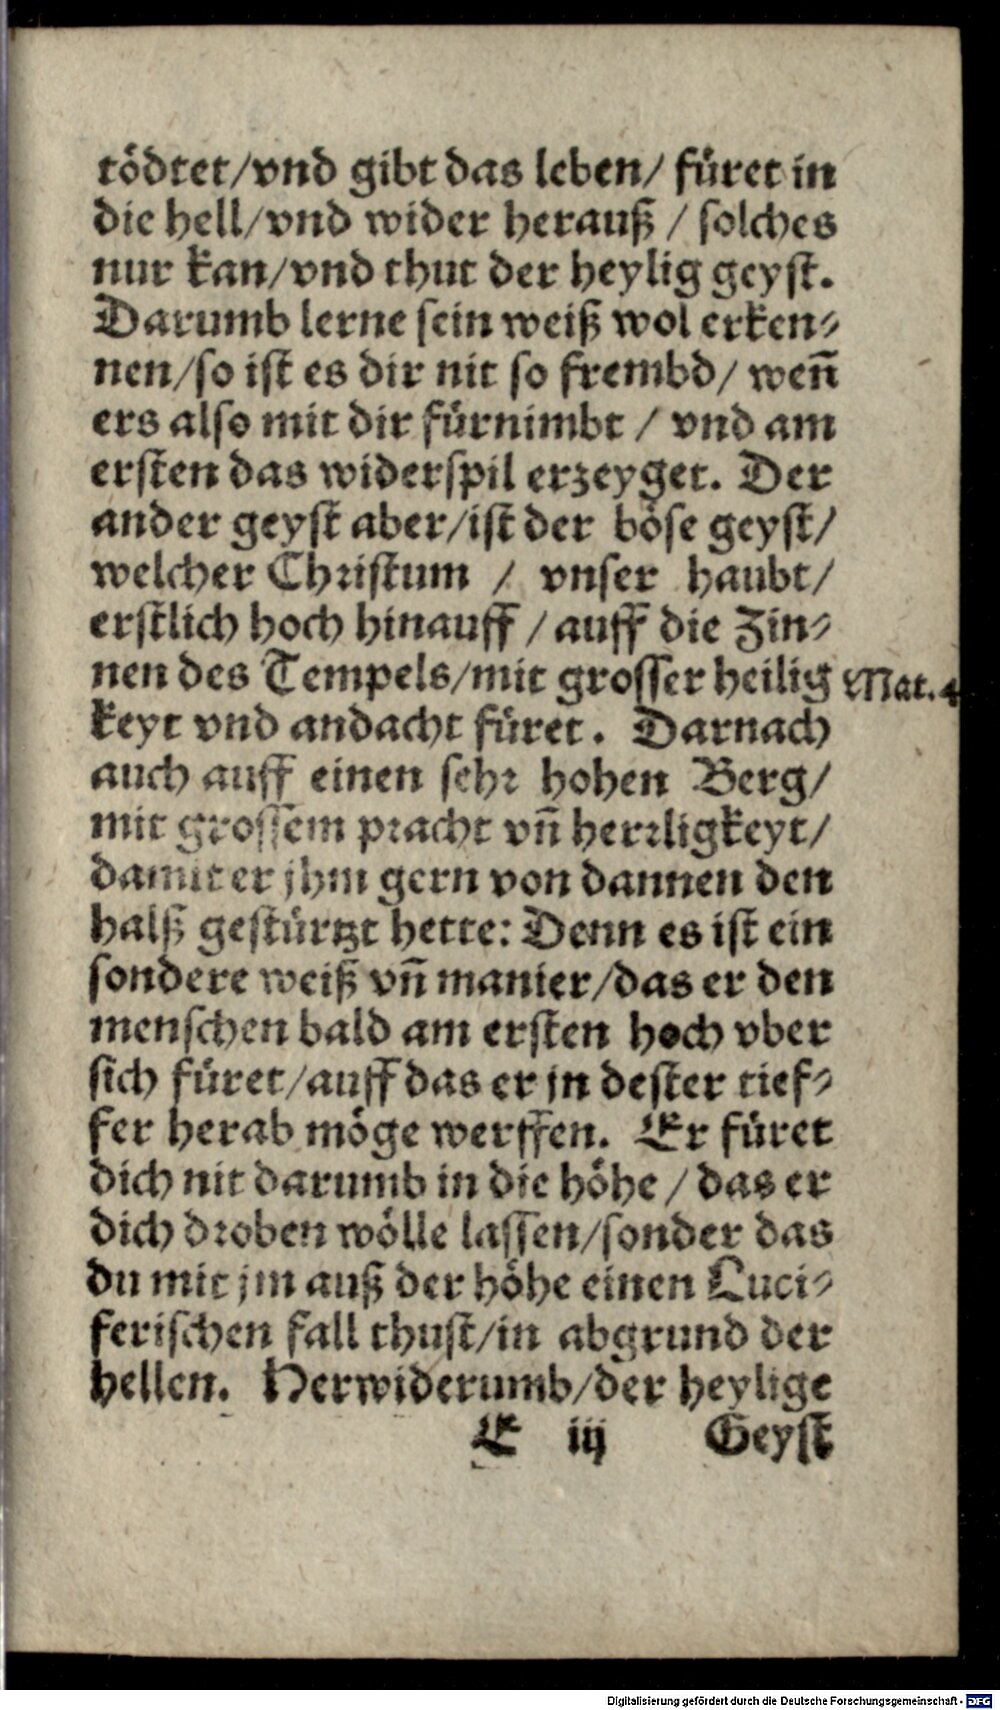 tödtet/vnd gibt das leben/ füret in
die hell/vnd wider herauß / solches
nur kan/vnd thut der heylig geyst.
Darumb lerne sein weiß wol erken⸗
nen/so ist es dir nit so frembd/ weñ
ers also mit dir fürnimbt / vnd am
ersten das widerspil erzeyget. Der
ander geyst aber/ist der böse geyst/
welcher Christum / vnser haubt/
erstlich hoch hinauff / auff die Zin⸗
nen des Tempels/mit grosser heilig Mat.4
keyt vnd andacht füret. Darnach
auch auff einen sehr hohen Berg/
mit grossem pracht vñ herrligkeyt/
damit er jhm gern von dannen den
halß gestürtzt hette: Denn es ist ein
sondere weiß vñ manier/das er den
menschen bald am ersten hoch vber
sich füret/auff das er jn dester tief⸗
fer herab möge werffen. Er füret
dich nit darumb in die höhe / das er
dich droben wölle lassen/sonder das
du mit jm auß der höhe einen Luci⸗
ferischen fall thust/in abgrund der
hellen. Herwiderumb/der heylige
E iij Geyst
Digitalisierung gefördert durch die Deutsche Forschungsgemeinschaft - DFG